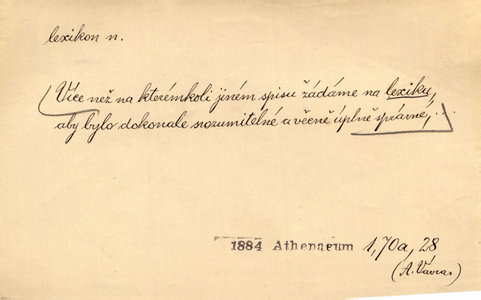 lexikon n.
Více než na kterémkoli jiném spisu žádáme na lexiku,
aby bylo dokonale srozumitelné a věcně úplně správné, ..
1884 Athenaeum 1,70a, 28
(A. Vávra)